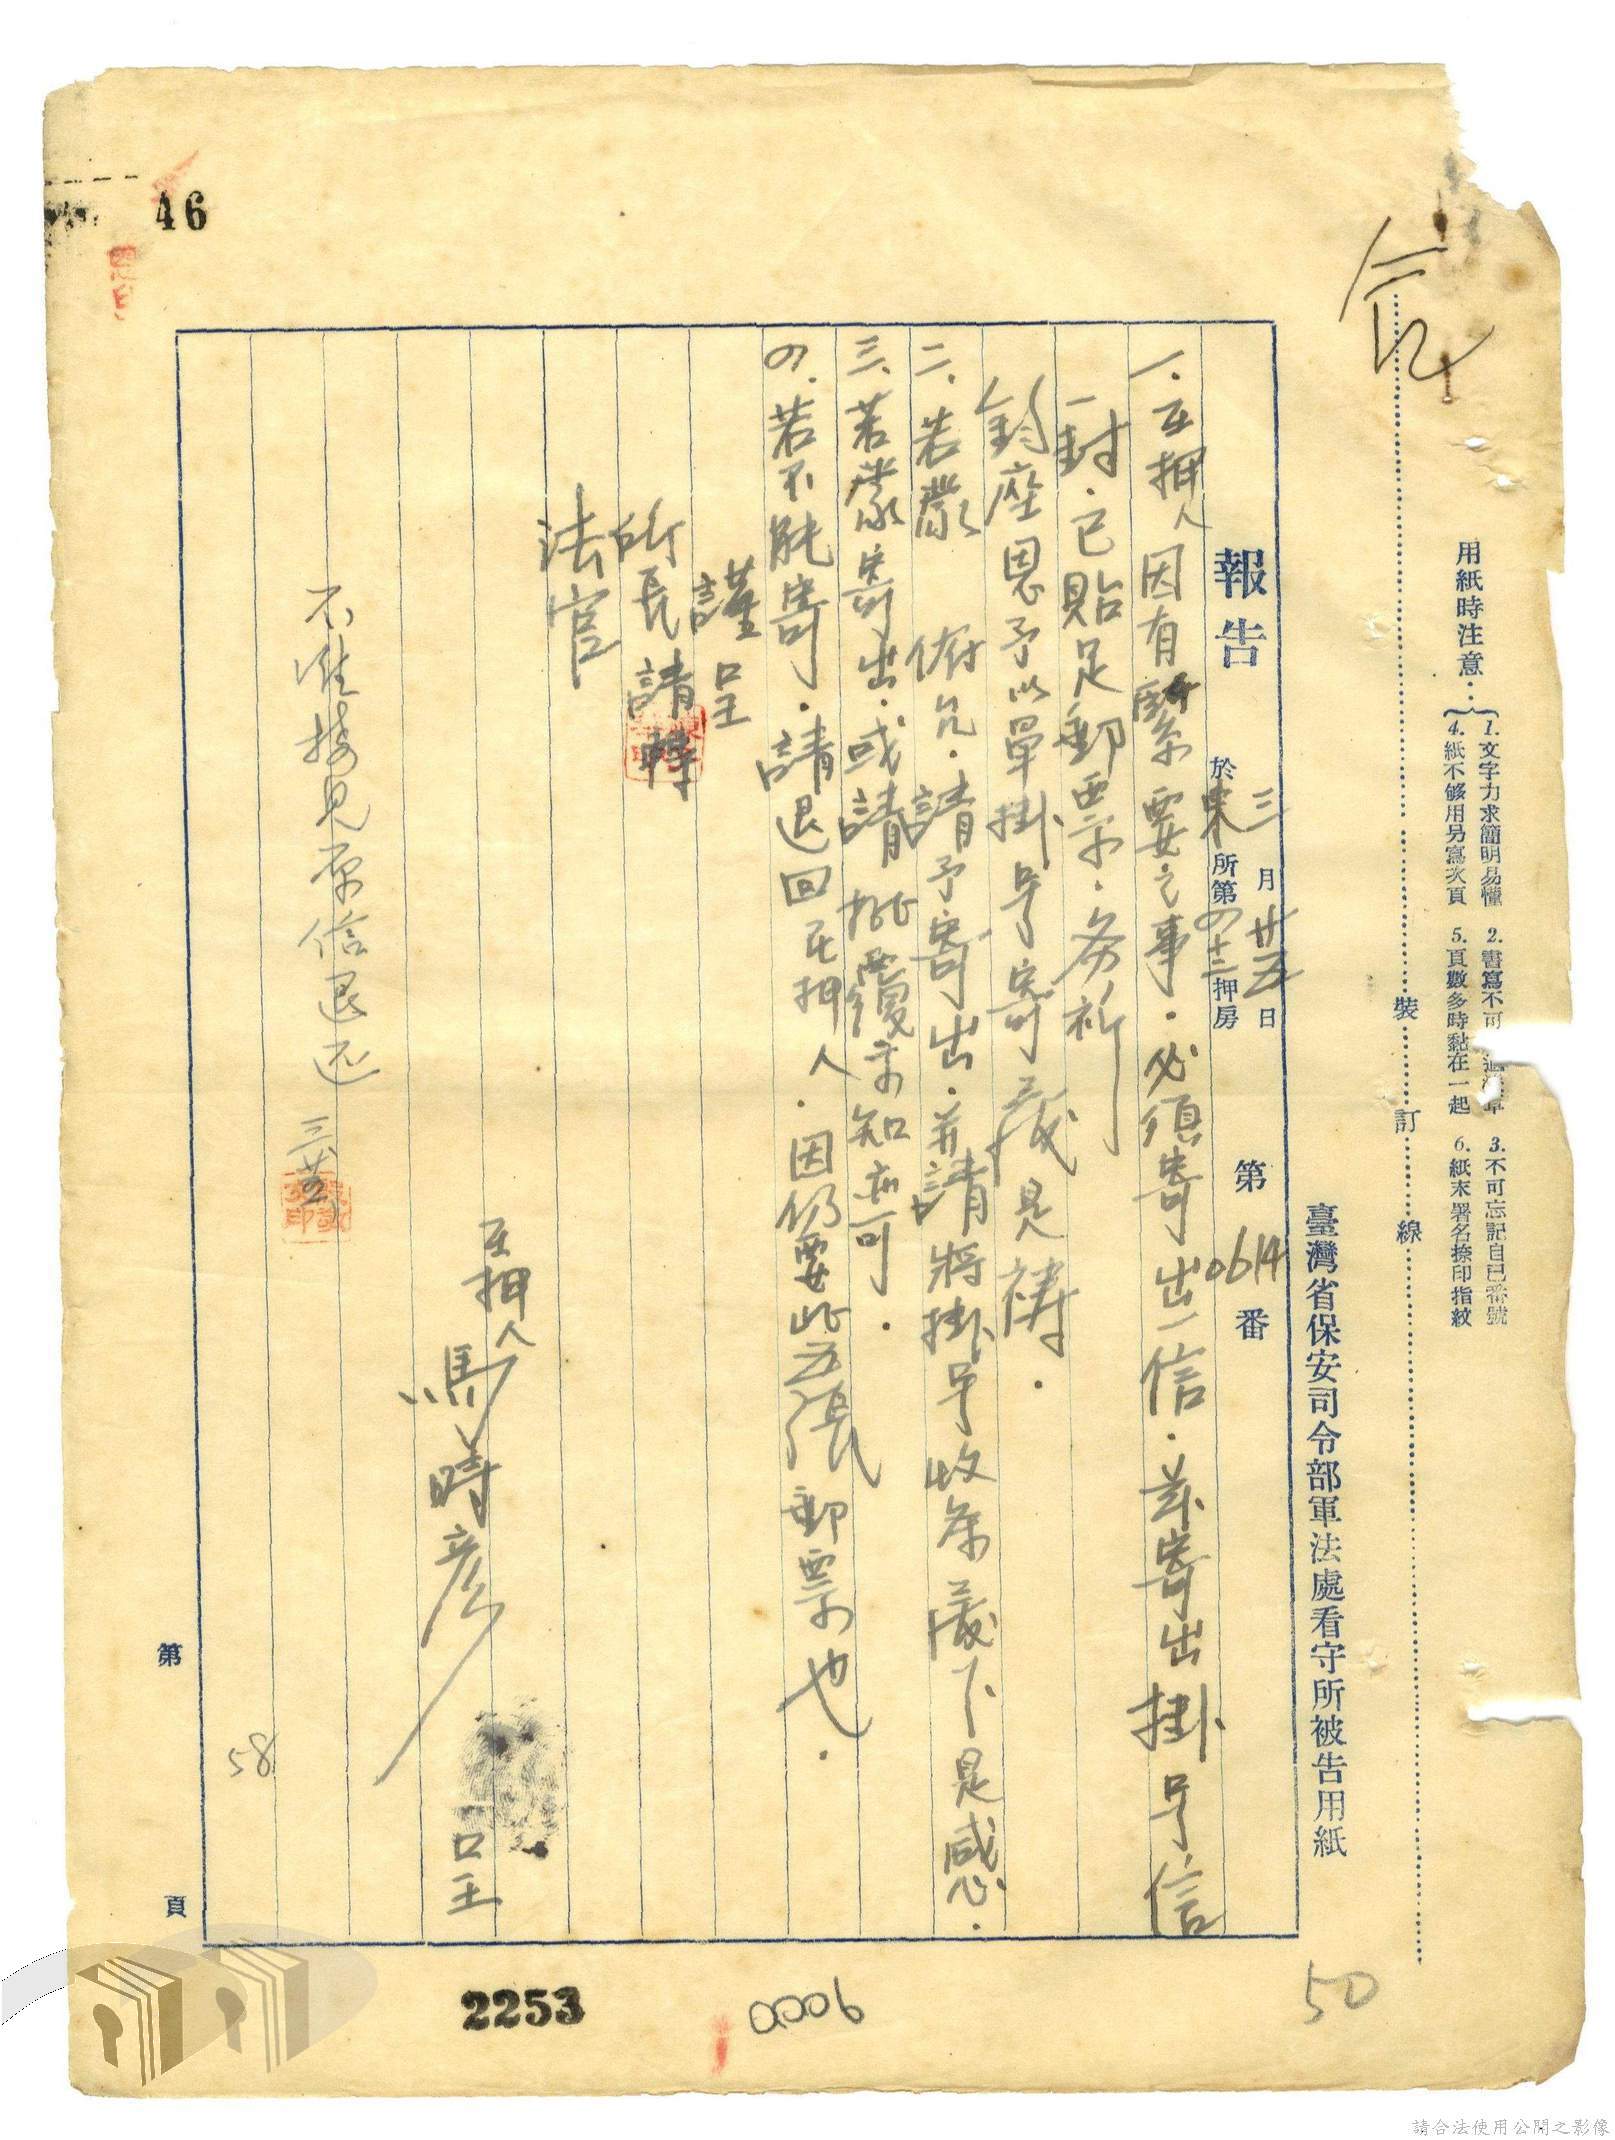 用紙時注意：
1. 文字力求簡明易懂 2. 書寫不可 3. 不可忘記自己番號
4. 紙不够用另寫次頁 5. 頁數多時黏在一起 6. 紙末署名捺印指紋
裝 訂 線
臺灣省保安司令部軍法處看守所被告用紙
報告 三月廿五日 於東所第四十二押房 第0614番
一、在押人因有緊要之事．必須寄出一信．茲寄出掛号信
一封．已貼足郵票．务祈
鈞座恩予以單掛号寄 是禱．
二、若蒙 俯允．請予寄出．並請將掛号收条 下是感．
三、若蒙寄出．或請批覆示知亦可．
四．若不能寄．請退回在押人．因仍要此五張郵票也．
謹呈
所長請轉
法官
在押人 馬時彥 呈
不准接見原信退还 三
第 頁
46
58
50
2253
0006
請合法使用公開之影像